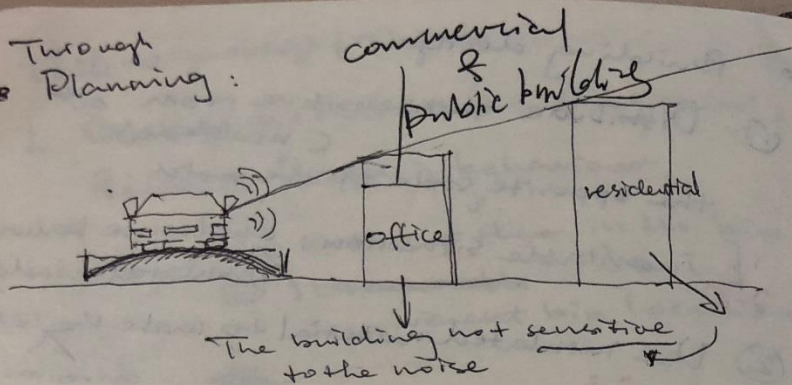 Through
Planning :
commercial
&
public building
office
residential
The building not sensitive
to the noise